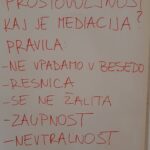 PROSTOVOLJNOST
KAJ JE MEDIACIJA?
PRAVILA:
-NE VPADAMO V BESEDO
-RESNICA
-SE NE ŽALITA
-ZAUPNOST
-NEVTRALNOST